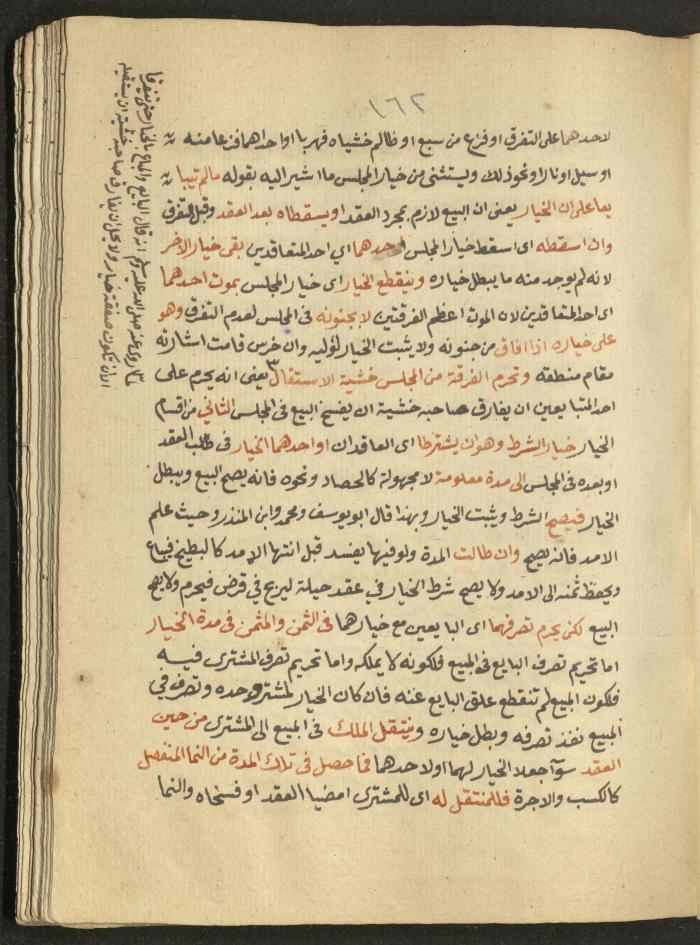 ١٦٢
لاحدهما على التفرق او فزع من سبع او ظالم خشياه فهربا او احداهما فزعا منه
او سيل او نار او نحو ذلك ويستثنى من خيار المجلس ما اشير اليه بقوله مالم تيبا
يعا على ان الخيار يعنى ان البيع لازم بمجرد العقد او يسقطاه بعد العقد وقبل التفرق
وان اسقطه اى اسقط خيار المجلس احدهما اي احد المتعاقدين بقى خيار الاخر
لانه لم يوجد منه ما يبطل خياره وينقطع الخيار اى خيار المجلس بموت احدهما
اى احد المتعاقدين لان الموت اعظم الفرقتين لا بجنونه فى المجلس لعدم التفرق وهو
على خياره اذا افاق من جنونه ولا يثبت الخيار لوليه وان خرس قامت اشارته
مقام منطقه وتحرم الفرقة من المجلس خشية الاستقال٣ يعنى انه يحرم على
احد المتبايعين ان يفارق صاحبه خشية ان يفسخ البيع فى المجلس الثاني من اقسام
الخيار خيار الشرط وهو ان يشترطا اى العاقدان او احدهما الخيار فى صلب العقد
او بعده فى المجلس الى مدة معلومة لا مجهولة كالحصاد ونحوه فانه يصح البيع ويبطل
الخيار فيصح الشرط ويثبت الخيار وبهذا قال ابو يوسف ومحمد وابن المنذر وحيث علم
الامد فانه يصح وان طالت المدة ولو فيها يفسد قبل انتها الامد كالبطيخ فيباع
ويحفظ ثمنه الى الامد ولا يصح شرط الخيار في عقد حيلة ليربح في قرض فيحرم ولا يصح
البيع لكن يحرم تصرفهما اى البايعين مع خيارهما فى الثمن والمثمن فى مدة الخيار
اما تحريم تصرف البايع فى المبيع فلكونه لا يملكه واما تحريم تصرف المشترى فيه
فلكون المبيع لم تنقطع علق البايع عنه فان كان الخيار لمشتر وحده وتصرف في
المبيع نفذ تصرفه وبطل خياره وينتقل الملك فى المبيع الى المشترى من حين
العقد سوآ جعلا الخيار لهما او لاحدهما فما حصل فى تلك المدة من النما المنفصل
كالكسب والاجرة فللمنتقل له اى للمشترى امضيا العقد او فسخاه والنما
٣ لما روى عنه صلى الله عليه وسلم انه قال البايع والمبتاع بالخيار حتى يتفرقا
الا ان تكون صفقة خيار ولا يحل ان يفارق صاحبه خشية ان يستقيله